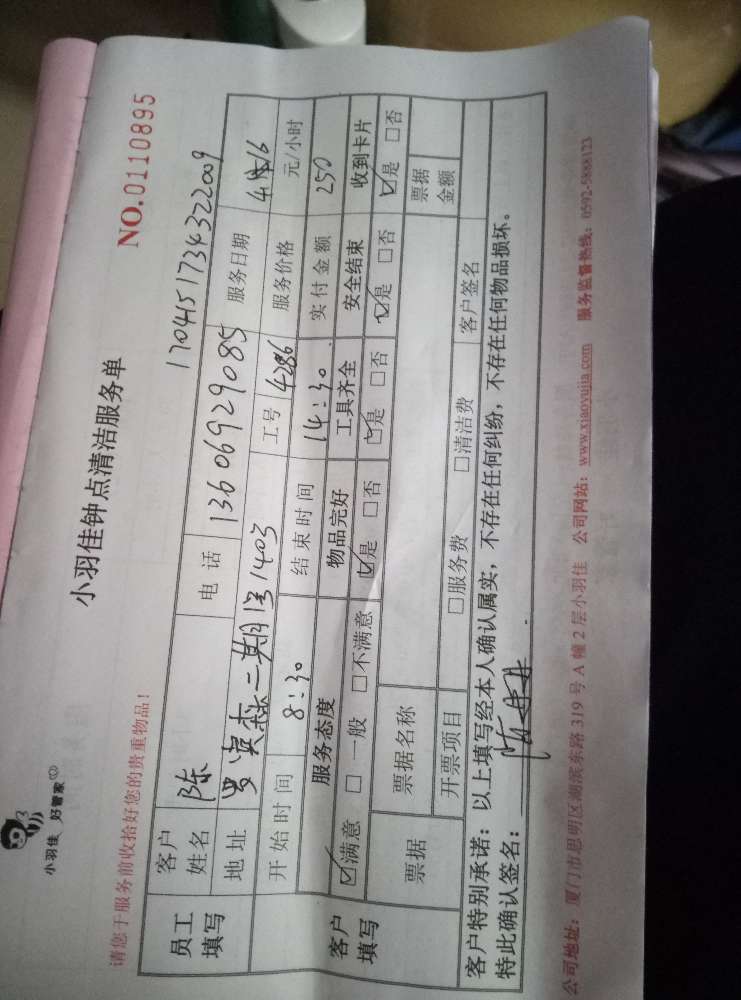 小羽佳 好管家
NO.0110895
小羽佳钟点清洁服务单
请您于服务前收拾好您的贵重物品！
170415173432 2009
员工填写
客户姓名 陈 电话 13606929085 服务日期
地址 二期 1403 工号 4286 服务价格 元/小时
开始时间 8:30 结束时间 14:30. 实付金额 250
客户填写
服务态度 物品完好 工具齐全 安全结束 收到卡片
☑满意 □一般 □不满意 ☑是 □否 ☑是 □否 ☑是 □否 ☑是 □否
票据 票据名称 票据金额
开票项目 □服务费 □清洁费 客户签名
客户特别承诺：以上填写经本人确认属实，不存在任何纠纷，不存在任何物品损坏。
特此确认签名：
公司地址：厦门市思明区湖滨东路319号A幢2层小羽佳 公司网站：www.xiaoyujia.com 服务监督热线：0592-5888123